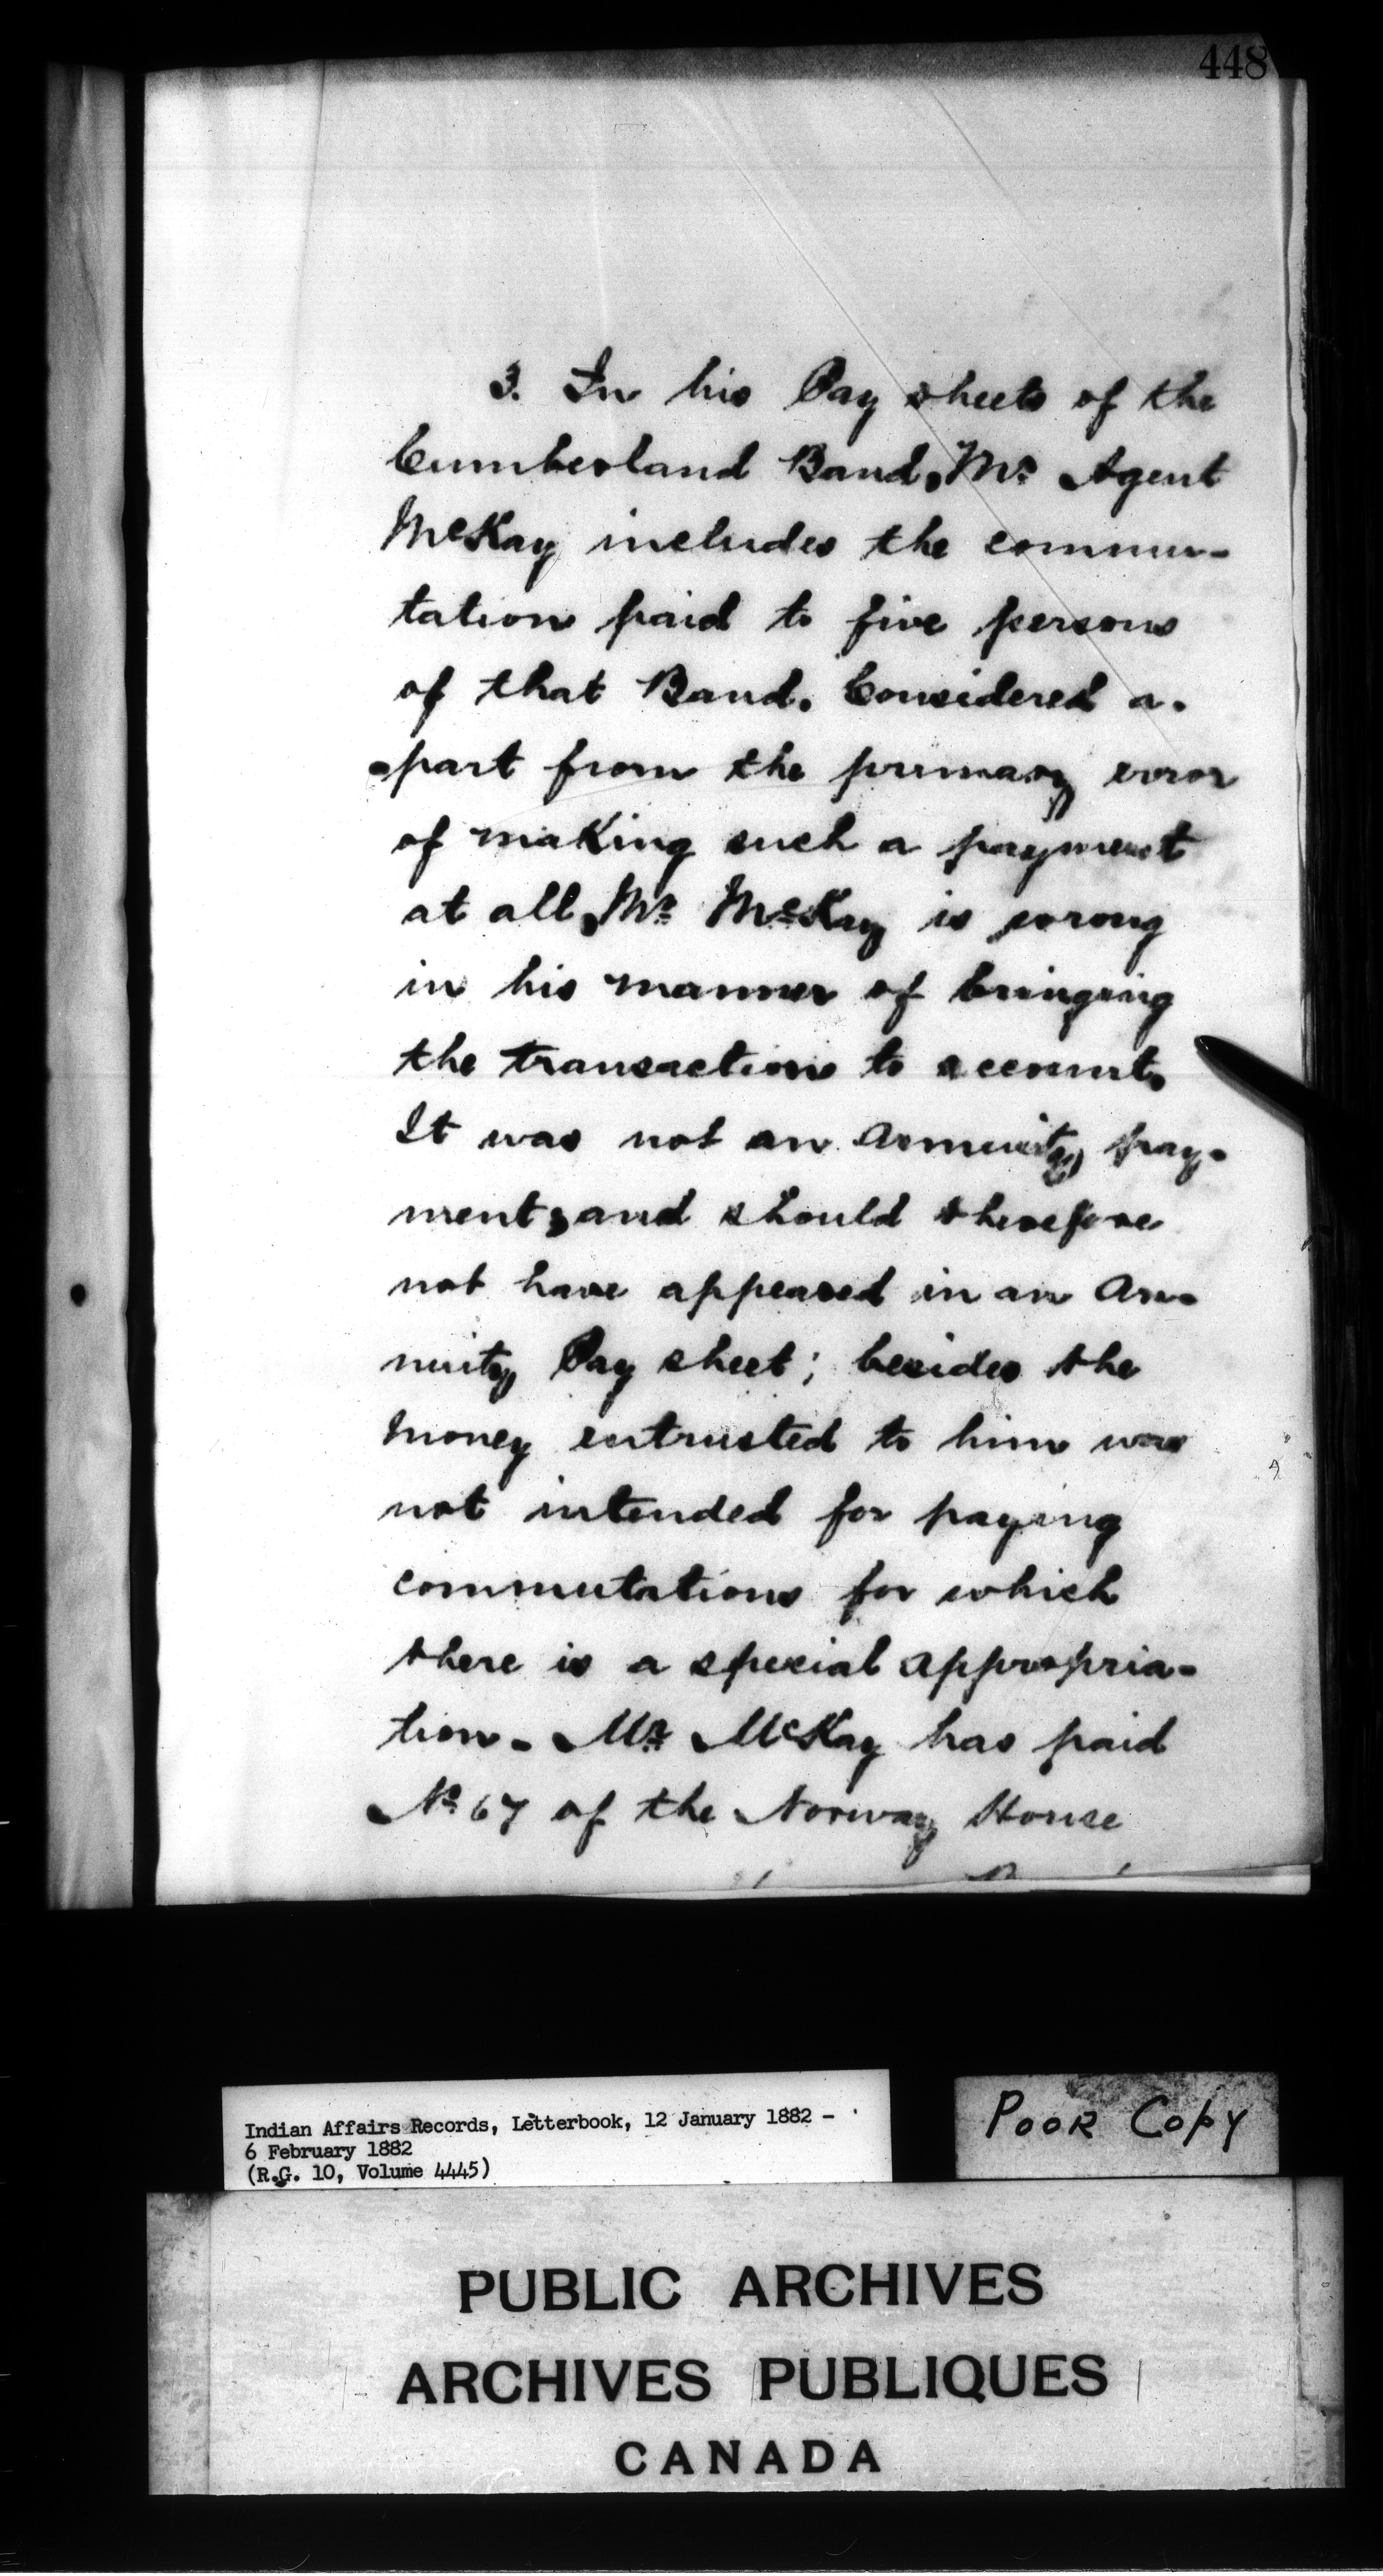 448
3. In his Pay sheets of the
Cumberland Band, Mr. Agent
McKay includes the commu-
tation paid to five persons
of that Band. Considered a-
-part from the primary error
of making such a payment
at all, Mr. McKay is wrong
in his manner of bringing
the transaction to account.
It was not an Annuity pay-
ment, and should therefore
not have appeared in an An-
nuity Pay sheet; besides the
money entrusted to him was
not intended for paying
commutations for which
there is a special appropria-
tion. Mr. McKay has paid
No. 67 of the Norway House
Indian Affairs Records, Letterbook, 12 January 1882 -
6 February 1882
(R.G. 10, Volume 4445)
POOR COPY
PUBLIC ARCHIVES
ARCHIVES PUBLIQUES
CANADA